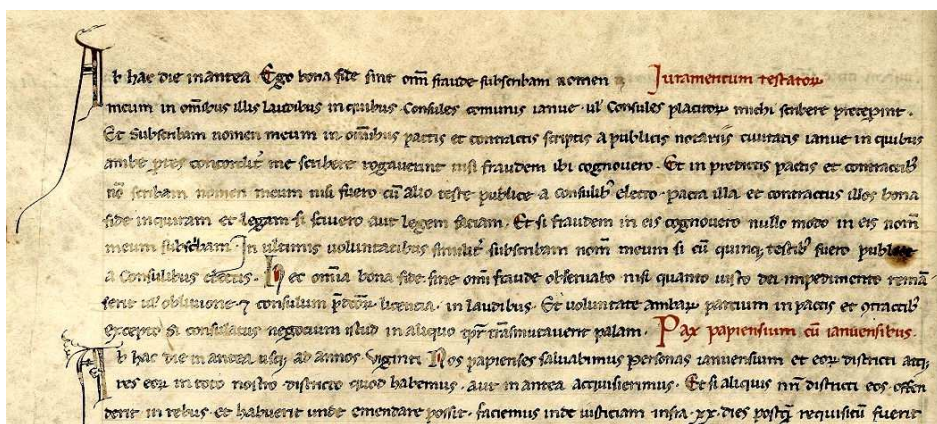 Ab hac die in antea Ego bona fide sine om̄i fraude subscribam nomen Iuramentum testatoꝝ
meum in om̄ibus illis laudibus in quibus Consules comunis ianue · ul̓ Consules placitoꝝ michi scribere preceperint ·
Et Subscribam nomen meum in om̄ibus pactis et contractis scriptis a publicis notariis ciuitatis ianue in quibus
ambe ꝑtes concordit̓ me scribere rogauerint nisi fraudem ibi cognouero · Et in predictis pactis et contractib;
nō scribam nomen meum nisi fuero cū alio teste publice a Consulib; electo · pacta illa et contractus illos bona
fide inquiram et legam si sciuero aut legere faciam · Et si fraudem in eis cognouero nullo modo in eis nom̄
meum subscribam · In ultimis uoluntatibus similit̓ subscribam nom̄ meum si cū quinq; testib; fuero publice
a Consulibus electis · Hec et om̄ia bona fide sine om̄i fraude obseruabo nisi quanto iusto dei impedimento remā
serit ul̓ obliuione ⁊ consulum p̄dc̄oꝝ licencia · in laudibus · Et uoluntate ambaꝝ partium in pactis et ꝯtractib;
excepto si consulatus negocium istud in aliquo tp̄r trāsmutauerit palam · Pax papiensium cū ianuensibus ·
Ab hac die in antea usq; ad annos uiginti Nos papienses saluabimus personas ianuensium et eoꝝ districti atq;
res eoꝝ in toto nostro districto quod habemus · aut in antea acquisierimus · Et si aliquis nr̄i districti eos offen
derit in rebus et habuerit unde emendare possit · faciemus inde iusticiam infra · xx · dies postq̄ requisitū fuerit